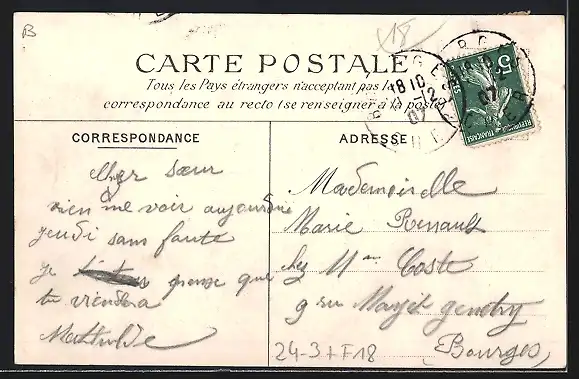 B
18
CARTE POSTALE
Tous les Pays étrangers n'acceptant pas la
correspondance au recto (se renseigner à la poste)
CORRESPONDANCE
cher sœur
vien me voir aujourdui
jeudi sans faute
je pense que
tu viendra
Mathilde
ADRESSE
Mademoiselle
Marie Renault
chez Mme Coste
9 rue
Bourges
24-3+F18
5
REPUBLIQUE FRANÇAISE
18 10
07